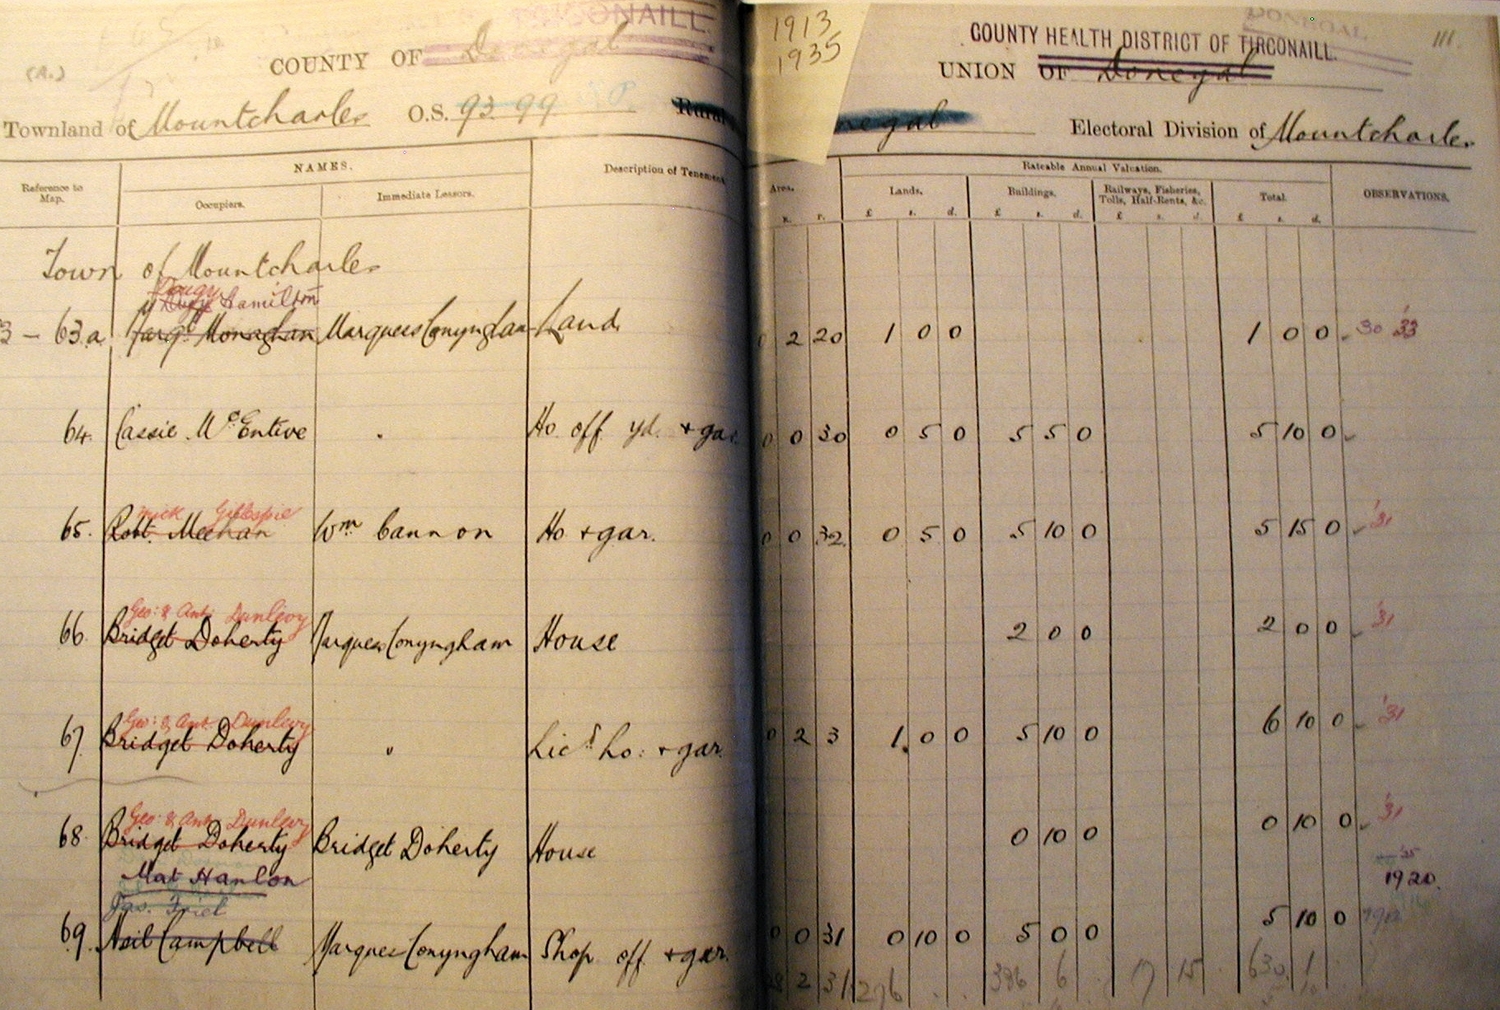 COUNTY OF Donegal TIRCONAILL.
Townland of Mountcharles O.S. 93. 99 Rural
NAMES.
Reference to Map. Occupiers. Immediate Lessors. Description of Tenement
Town of Mountcharles
Dougy
Hamilton
63a Margt Monaghan Marquess Conyngham Land
64. Cassie McEntire " Ho off yd. + gar.
mick Gillespie
65. Robt. Meehan Wm Cannon Ho + gar.
Geo: & Ant: Dunlevy
66 Bridget Doherty Marquess Conyngham House
Geo: & Ant: Dunlevy
67. Bridget Doherty " Licd ho: + gar.
Geo: & Ant: Dunlevy
68 Bridget Doherty Bridget Doherty House
Mat Hanlon
Jas. Friel
69. Neil Campbell Marquess Conyngham Shop off + gar.
1913
1935
DONEGAL
111.
COUNTY HEALTH DISTRICT OF TIRCONAILL.
UNION OF Donegal
negal Electoral Division of Mountcharles
Rateable Annual Valuation.
Area. Lands. Buildings. Railways, Fisheries, Tolls, Half-Rents, &c. Total OBSERVATIONS.
R. P. £ s. d. £ s. d. £ s. d. £ s. d.
2 20 1 0 0 1 0 0 30 '33
0 0 30 0 5 0 5 5 0 5 10 0
0 0 32 0 5 0 5 10 0 5 15 0 '31
2 0 0 2 0 0 '31
0 2 3 1 0 0 5 10 0 6 10 0 '31
0 10 0 0 10 0 '31
'35
1920.
0 0 31 0 10 0 5 0 0 5 10 0
2 31 276 386 6 17 15 630 1